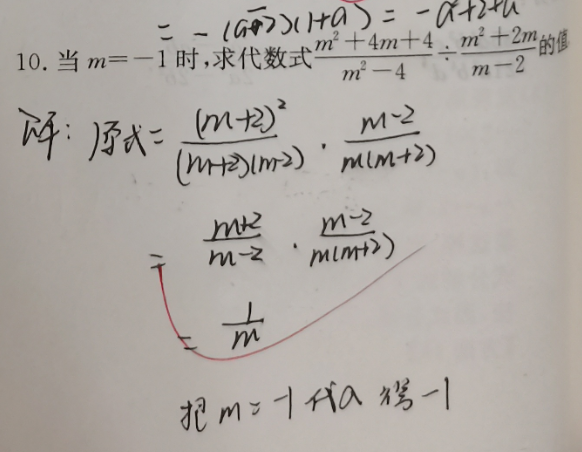 = -(a+2)(1+a) = -a²+2+a
10. 当 m=-1 时,求代数式 (m²+4m+4)/(m²-4) ÷ (m²+2m)/(m-2) 的值
解: 原式= (m+2)²/((m+2)(m-2)) · (m-2)/(m(m+2))
= (m+2)/(m-2) · (m-2)/(m(m+2))
= 1/m
把 m=-1 代入 得 -1